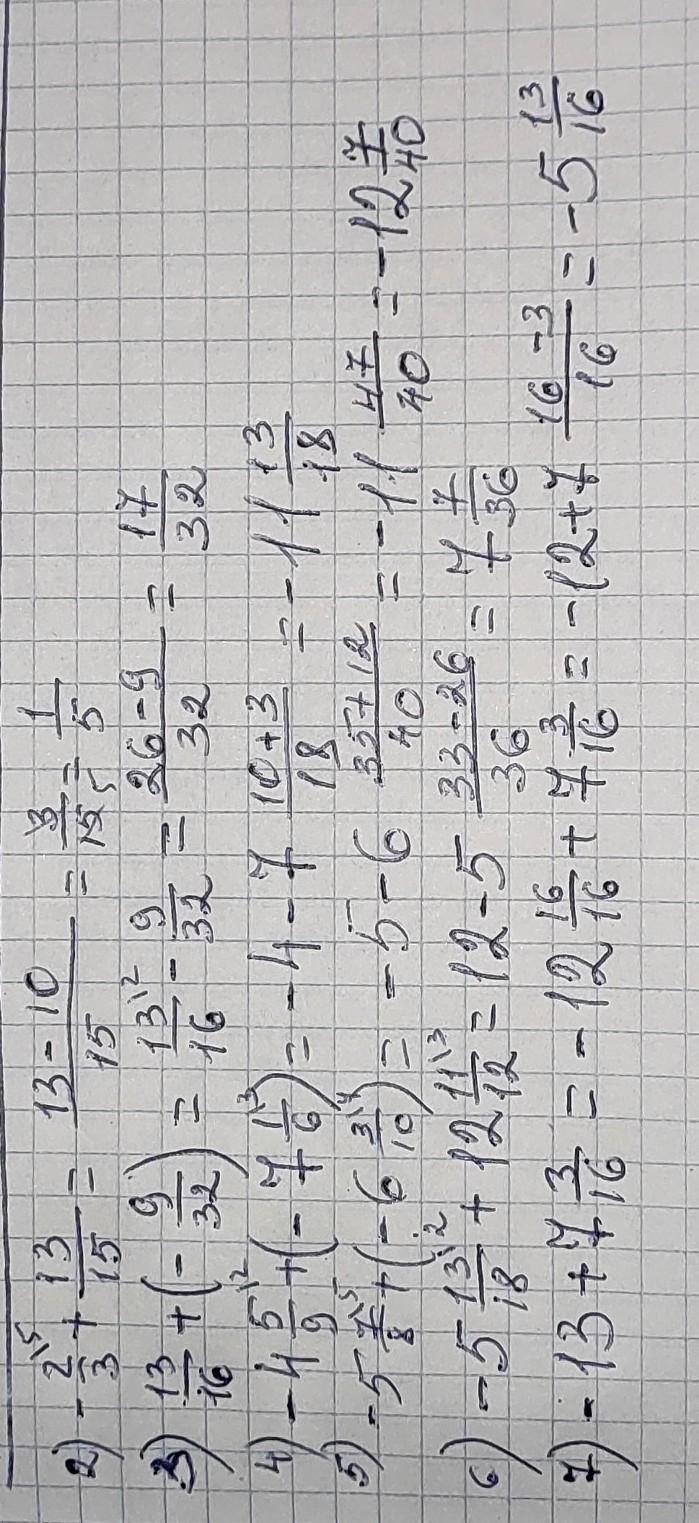 2) -2/3\5 + 13/15 = (13-10)/15 = 3/15 5 = 1/5
3) 13/16 + (-9/32) = 13\2/16 - 9/32 = (26-9)/32 = 17/32
4) -4 5\2/9 + (-7 1\3/6) = -4-7 (10+3)/18 = -11 13/18
5) -5 7\5/8 + (-6 3\4/10) = -5-6 (35+12)/40 = -11 47/40 = -12 7/40
6) -5 13\2/18 + 12 11\3/12 = 12-5 (33-26)/36 = 7 7/36
7) -13 + 7 3/16 = -12 16/16 + 7 3/16 = -12+7 (16-3)/16 = -5 13/16